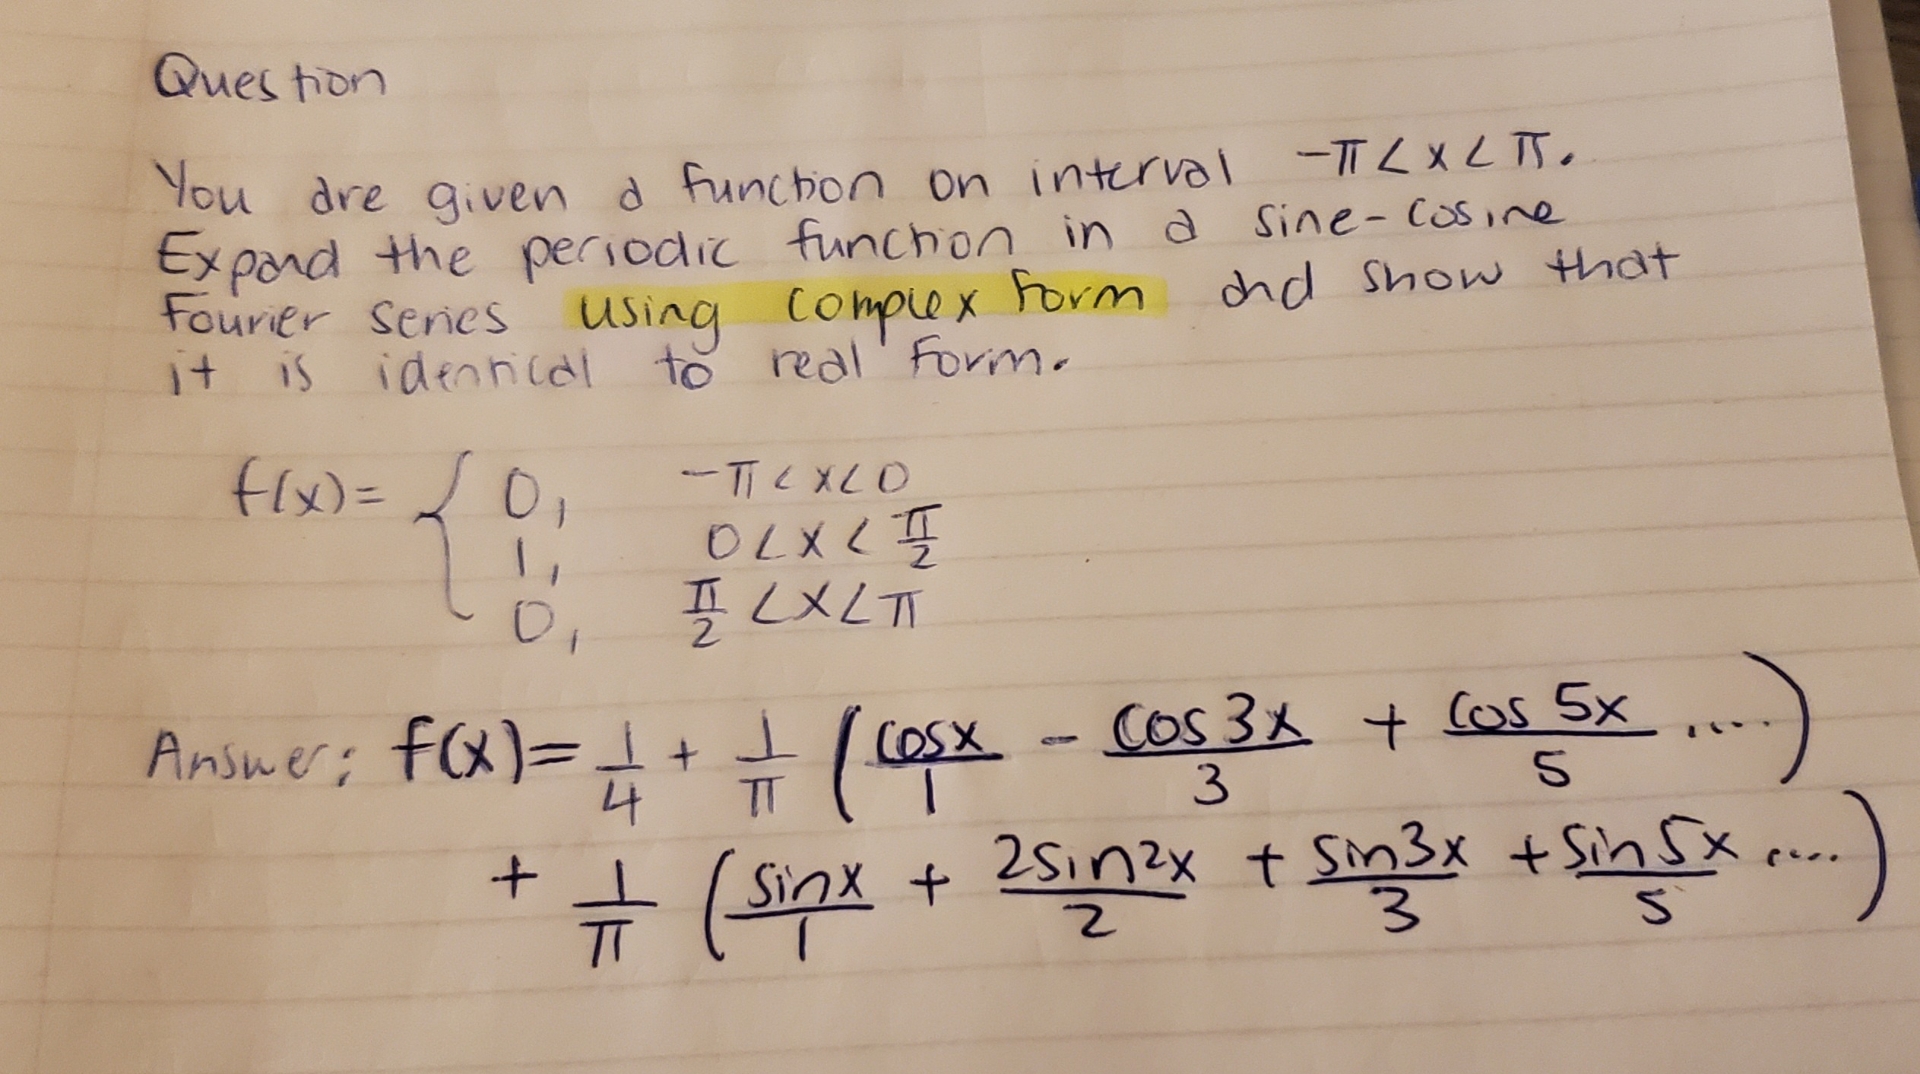 Question
You are given a function on interval -π<x<π.
Expand the periodic function in a sine-cosine
Fourier series using complex form and show that
it is identical to real form.
f(x)= { 0, -π<x<0
1, 0<x<π/2
0, π/2<x<π
Answer: f(x)= 1/4 + 1/π (cosx/1 - cos3x/3 + cos5x/5 ....)
+ 1/π (sinx/1 + 2sin2x/2 + sin3x/3 + sin5x/5 ....)